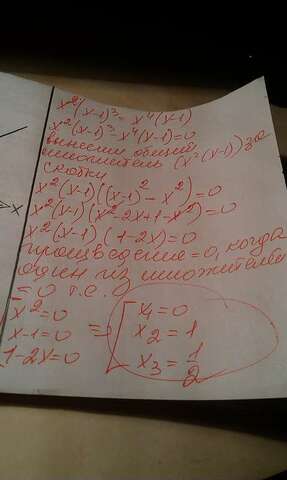 x²(x-1)³=x⁴(x-1)
x²(x-1)³-x⁴(x-1)=0
вынесим общий
множитель (x²(x-1)) за
скобки
x²(x-1)((x-1)²-x²)=0
x²(x-1)(x²-2x+1-x²)=0
x²(x-1)(1-2x)=0
произведение=0, когда
один из множителей
=0 т.е.
x²=0
x-1=0
1-2x=0
=> [x₁=0
x₂=1
x₃=1/2
x